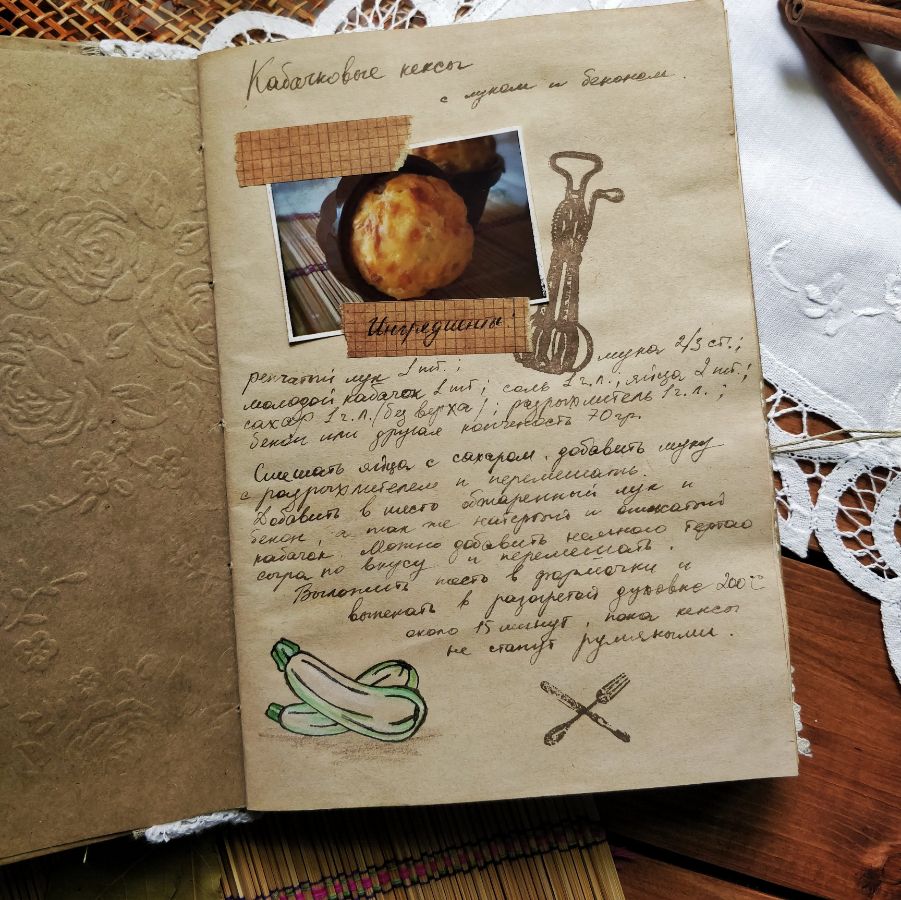 Кабачковые кексы
с луком и беконом.
Ингредиенты:
репчатый лук 1 шт.; мука 2/3 ст.;
молодой кабачок 1 шт; соль 1 г.л.; яйца 2 шт.;
сахар 1 г.л. (без верха); разрыхлитель 1 г.л.;
бекон или другая копчёность 70 гр.
Смешать яйца с сахаром, добавить муку
с разрыхлителем и перемешать.
Добавить в тесто обжаренный лук и
бекон, а так же натёртый и отжатый
кабачок. Можно добавить немного тертого
сыра по вкусу и перемешать.
Выложить тесто в формочки и
выпекать в разогретой духовке 200°С
около 15 минут, пока кексы
не станут румяными.